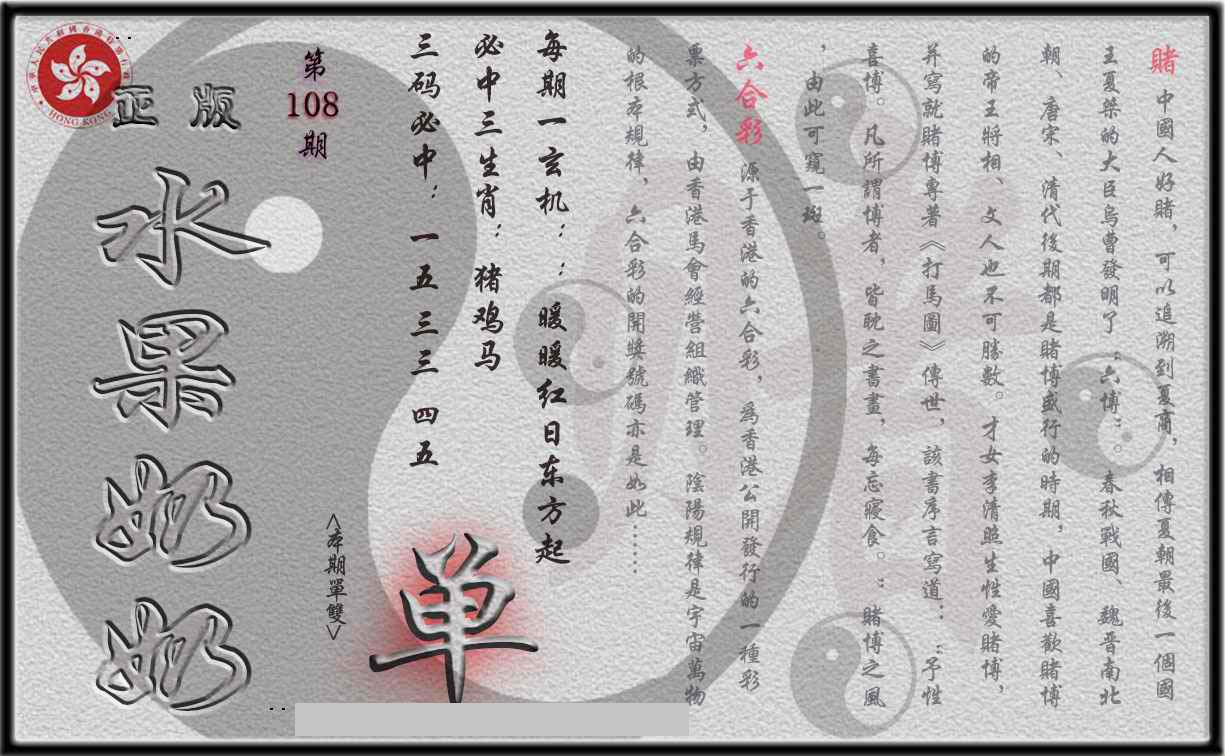 賭 中國人好賭，可以追溯到夏商，相傳夏朝最後一個國
王夏桀的大臣烏曹發明了“六博”。春秋戰國、魏晋南北
朝、唐宋、清代後期都是賭博盛行的時期，中國喜歡賭博
的帝王將相、文人也不可勝數。才女李清照生性愛賭博，
并寫就賭博專著《打馬圖》傳世，該書序言寫道：“予性
喜博。凡所謂博者，皆耽之晝晝，每忘寢食。”賭博之風
，由此可窺一斑。
六合彩 源于香港的六合彩，爲香港公開發行的一種彩
票方式，由香港馬會經營組織管理。陰陽規律是宇宙萬物
的根本規律，六合彩的開獎號碼亦是如此……
每期一玄机：：暖暖红日东方起
必中三生肖：猪鸡马
三码必中：一五 三三 四五
第
108
期
正版
水果奶奶
<本期單雙>
单
HONG KONG